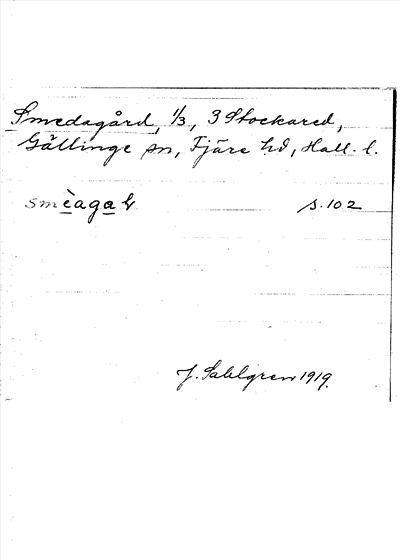 Smedagård, 1/3, 3 Stockared,
Gällinge sn, Fjäre hd, Hall. l.
smèaga s. 102
J. Sahlgren 1919.